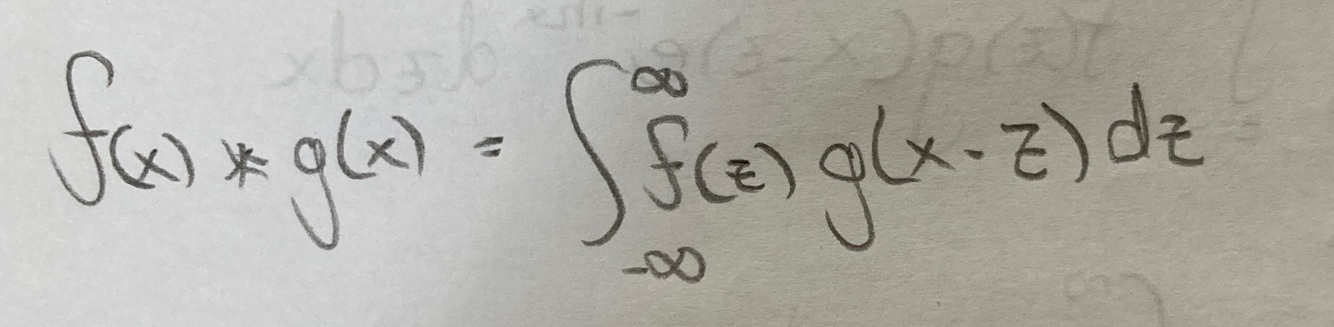 f(x) * g(x) = ∫_{-∞}^{∞} f(z) g(x-z) dz